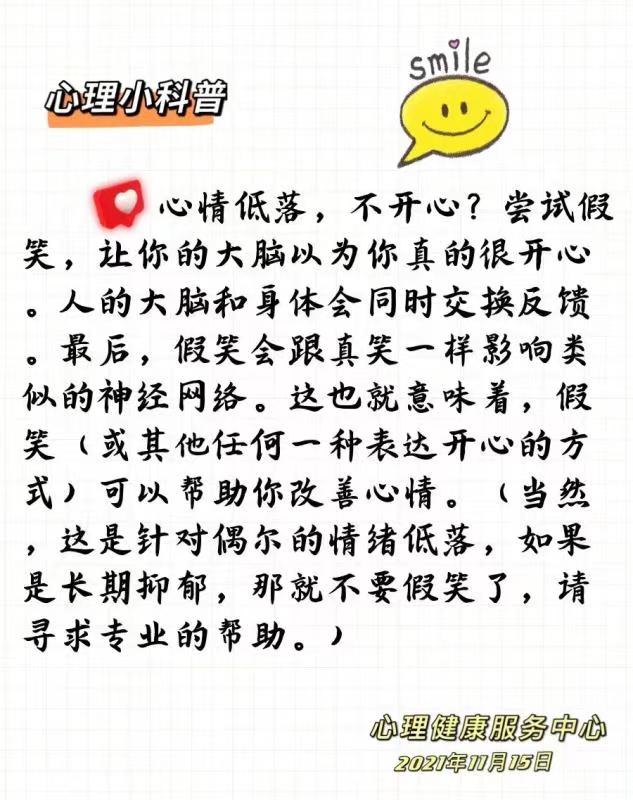 smile
心理小科普
心情低落，不开心？尝试假
笑，让你的大脑以为你真的很开心
。人的大脑和身体会同时交换反馈
。最后，假笑会跟真笑一样影响类
似的神经网络。这也就意味着，假
笑（或其他任何一种表达开心的方
式）可以帮助你改善心情。（当然
，这是针对偶尔的情绪低落，如果
是长期抑郁，那就不要假笑了，请
寻求专业的帮助。）
心理健康服务中心
2021年11月15日